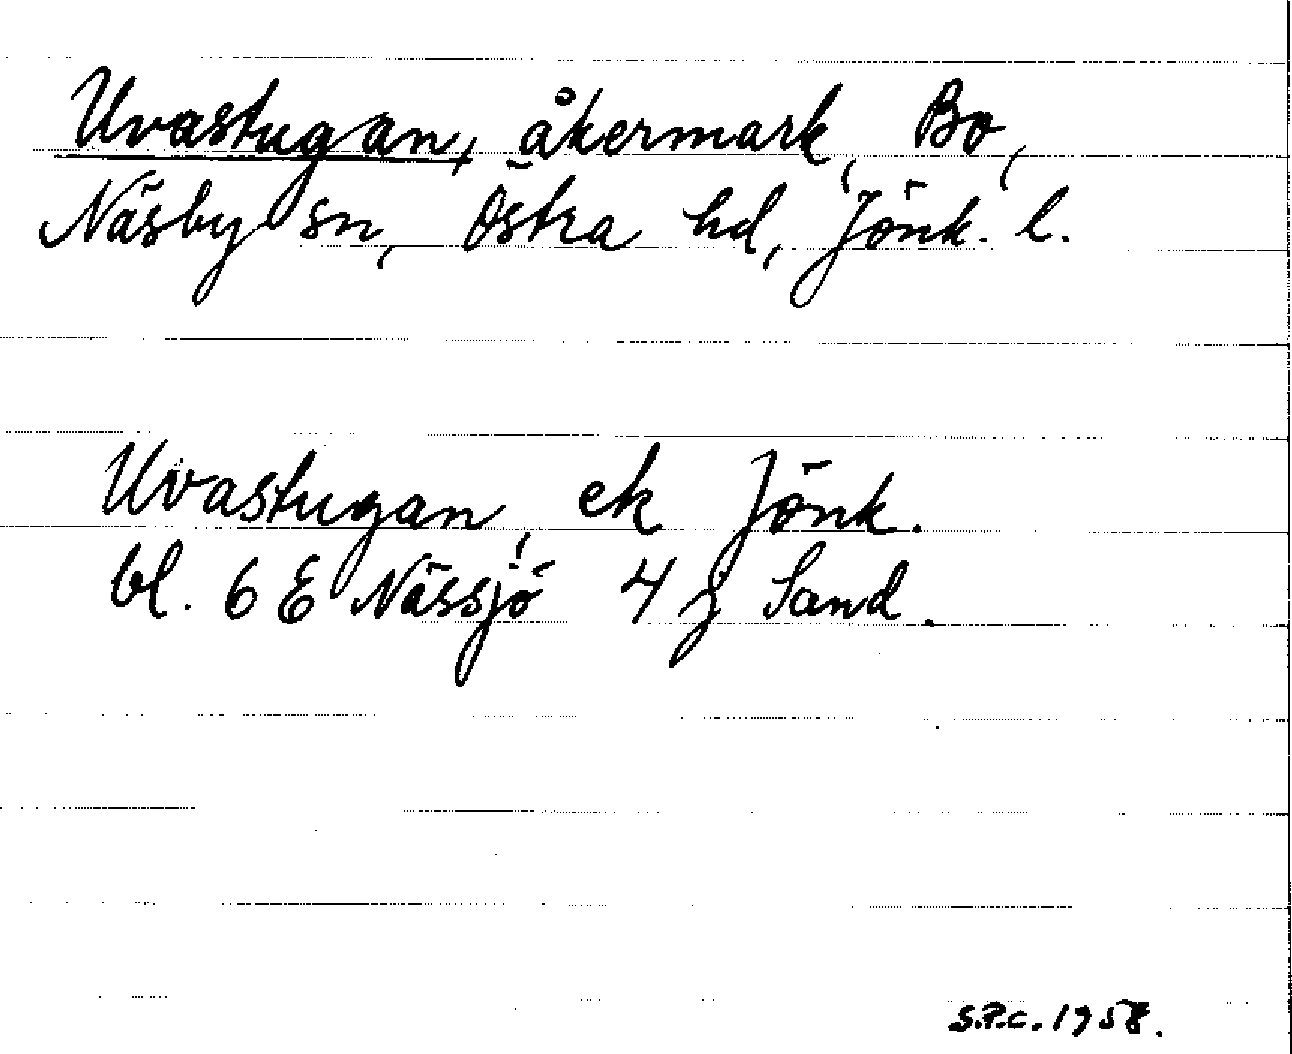 Uvastugan, åkermark, Bo,
Näsby sn, Östra hd, Jönk. l.
Uvastugan, ek Jönk.
bl. 6 E Nässjö 4 j Sand.
S.P.C. 1958.